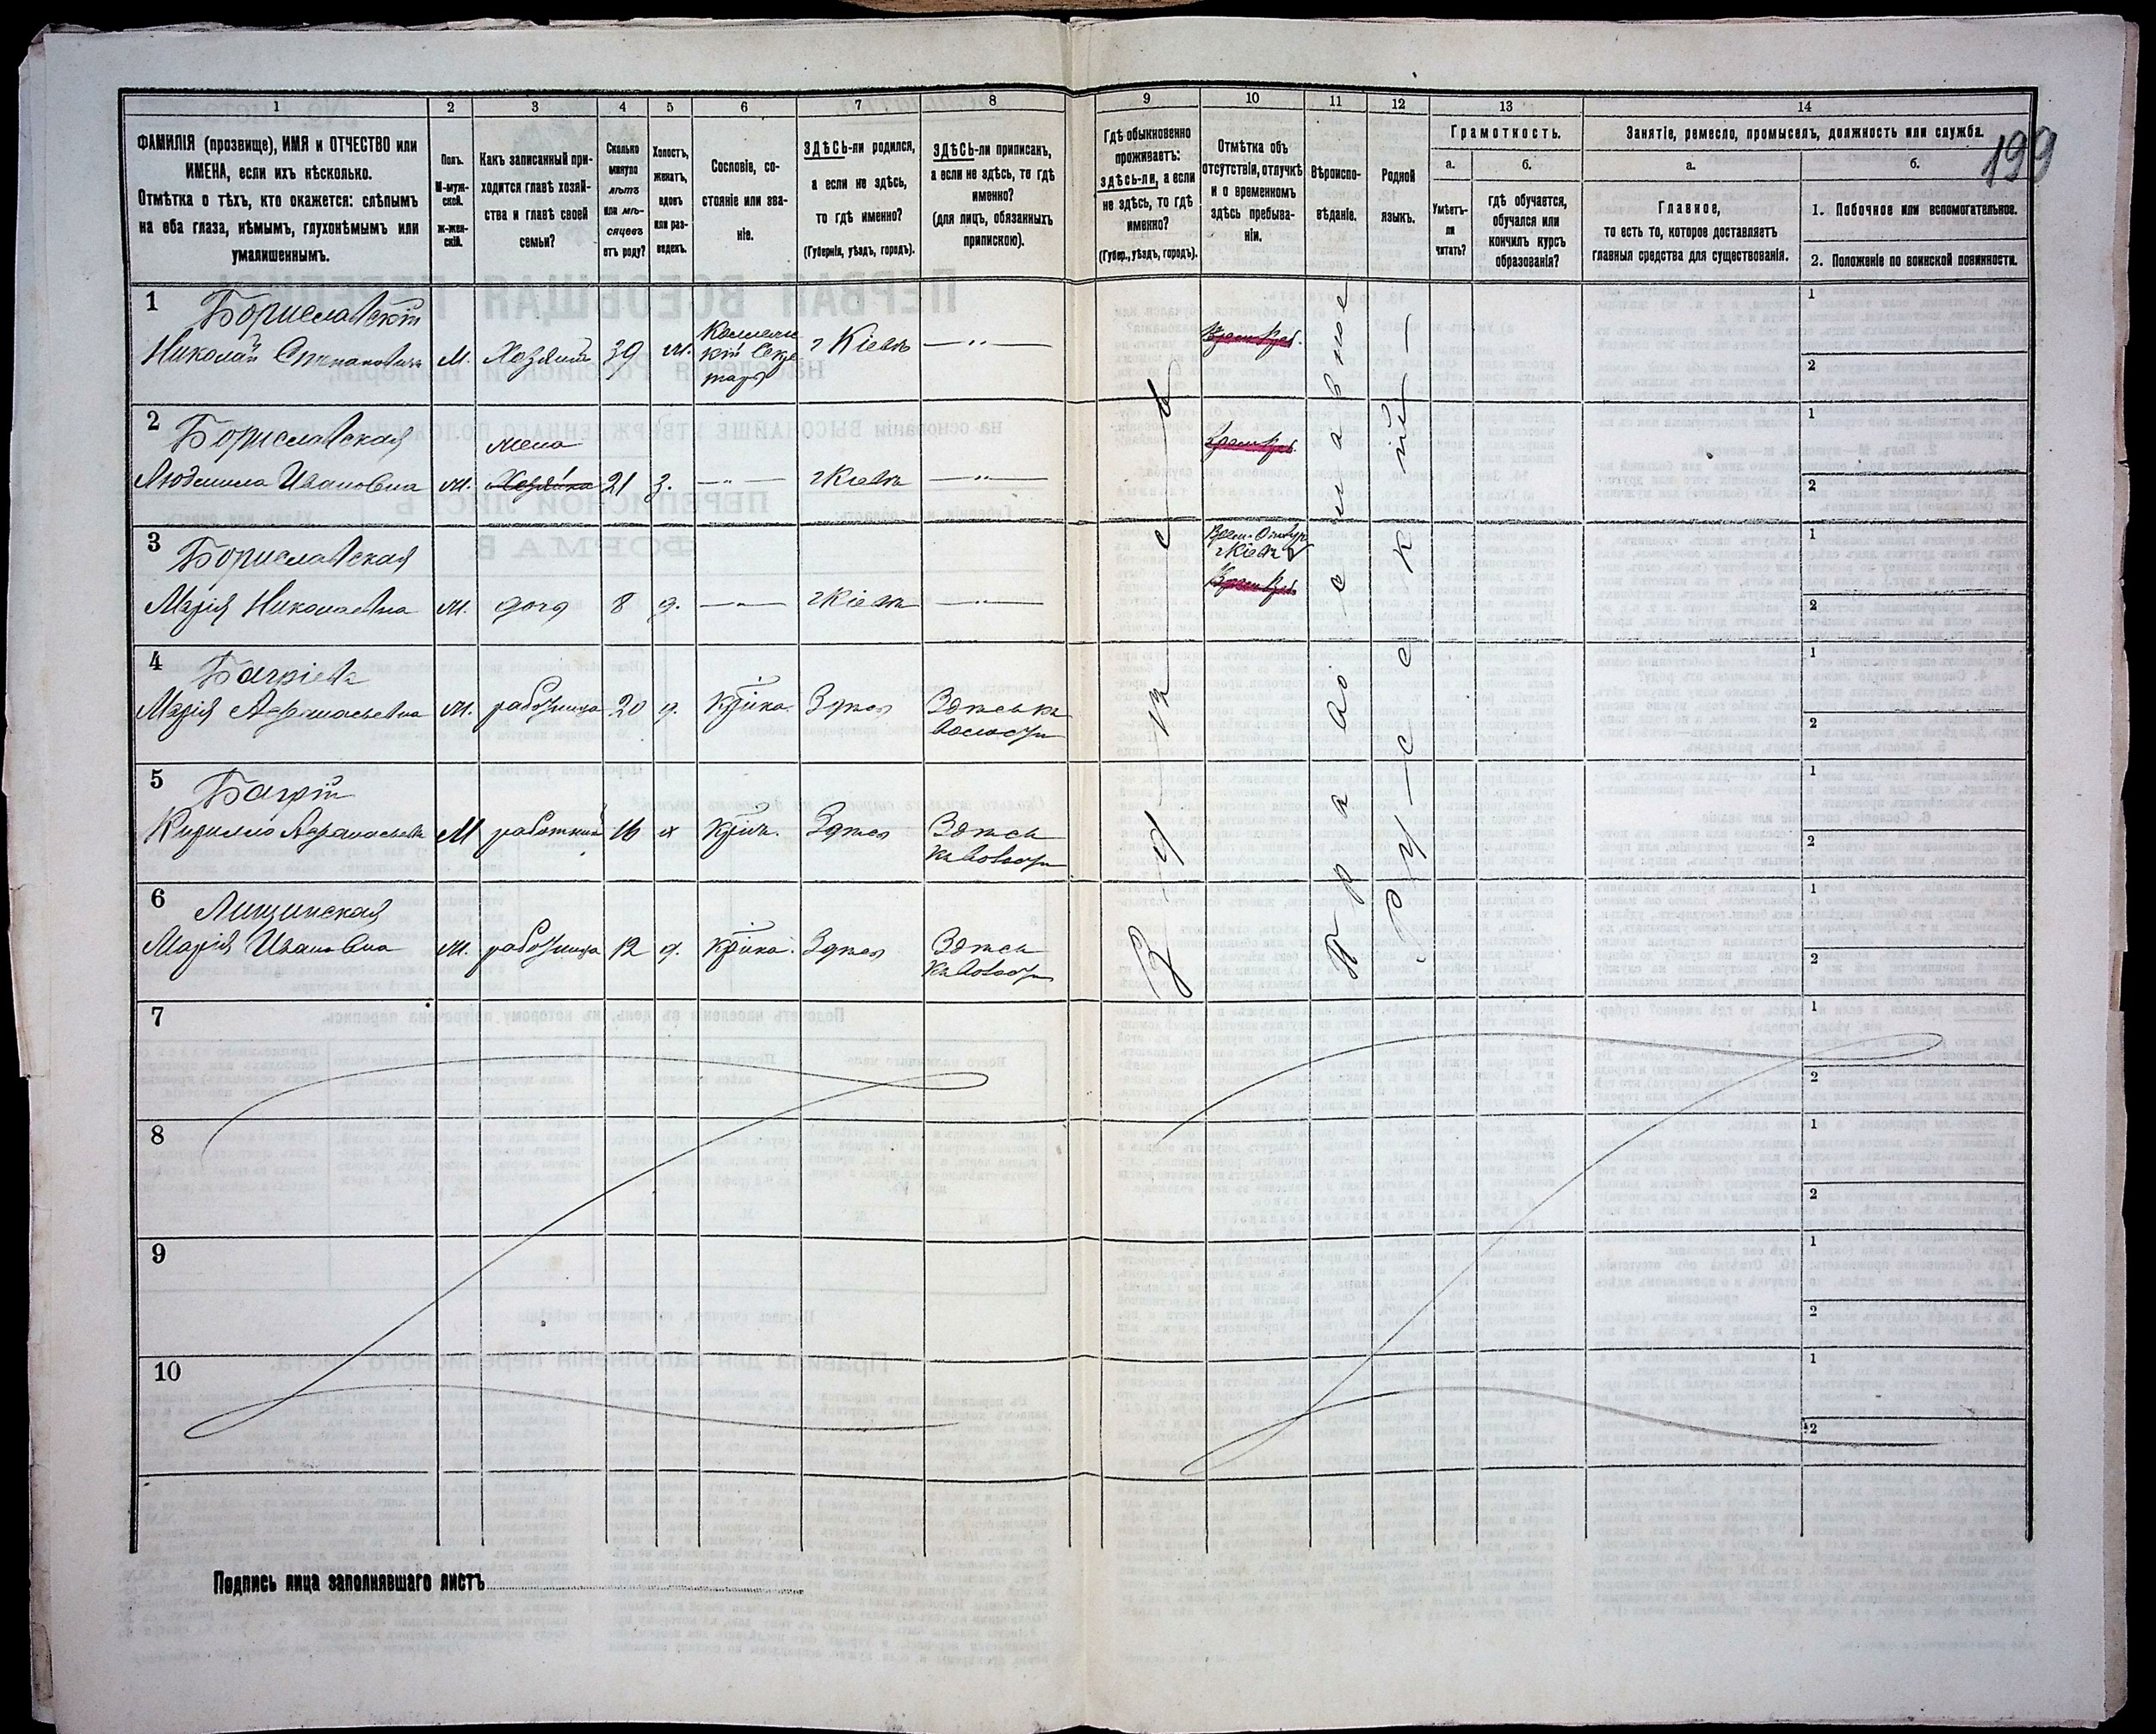 199
1
2
3
4
5
6
7
8
9
10
11
12
13
14
ФАМИЛІЯ (прозвище), ИМЯ и ОТЧЕСТВО или
ИМЕНА, если ихъ нѣсколько.
Отмѣтка о тѣхъ, кто окажется: слѣпымъ
на оба глаза, нѣмымъ, глухонѣмымъ или
умалишеннымъ.
Полъ.
М-муж-
ской.
ж-жен-
скій.
Какъ записанный при-
ходится главѣ хозяй-
ства и главѣ своей
семьи?
Сколько
минуло
лѣтъ
или мѣ-
сяцевъ
отъ роду?
Холостъ,
женатъ,
вдовъ
или раз-
веденъ.
Сословіе, со-
стояніе или зва-
ніе.
ЗДѢСЬ-ли родился,
а если не здѣсь,
то гдѣ именно?
(Губернія, уѣздъ, городъ).
ЗДѢСЬ-ли приписанъ,
а если не здѣсь, то гдѣ
именно?
(для лицъ, обязанныхъ
припискою).
Гдѣ обыкновенно
проживаетъ:
здѣсь-ли, а если
не здѣсь, то гдѣ
именно?
(Губер., уѣздъ, городъ).
Отмѣтка объ
отсутствіи, отлучкѣ
и о временномъ
здѣсь пребыва-
ніи.
Вѣроиспо-
вѣданіе.
Родной
языкъ.
Грамотность.
а.
Умѣетъ-
ли
читать?
б.
гдѣ обучается,
обучался или
кончилъ курсъ
образованія?
Занятіе, ремесло, промыселъ, должность или служба.
а.
Главное,
то есть то, которое доставляетъ
главныя средства для существованія.
б.
1. Побочное или вспомогательное.
2. Положеніе по воинской повинности.
1 Бориславскій
Николай Степановичъ М. Хозяинъ 39 ж. Коллежс
кій Секре
тарь г Кіевъ —"— 1
2
2 Бориславская
Людмила Ивановна ж. жена
Хозяйка 21 з. —"— г Кіевъ —"— 1
2
3 Бориславская
Марія Николаевна ж. дочь 8 д. —"— г Кіевъ —"— 1
2
4
Марія Афанасьевна ж. работница 20 д. Здѣсь Здѣсь въ
волости 1
2
5 Багрій
Кирилло М работникъ 16 х Здѣсь Здѣсь
1
2
6 Лищинская
Марія Ивановна ж. работница 12 д. Здѣсь Здѣсь
1
2
Здѣсь
Православное
Русскій
7 1
2
8 1
2
9 1
2
10 1
2
Подпись лица заполнявшаго листъ